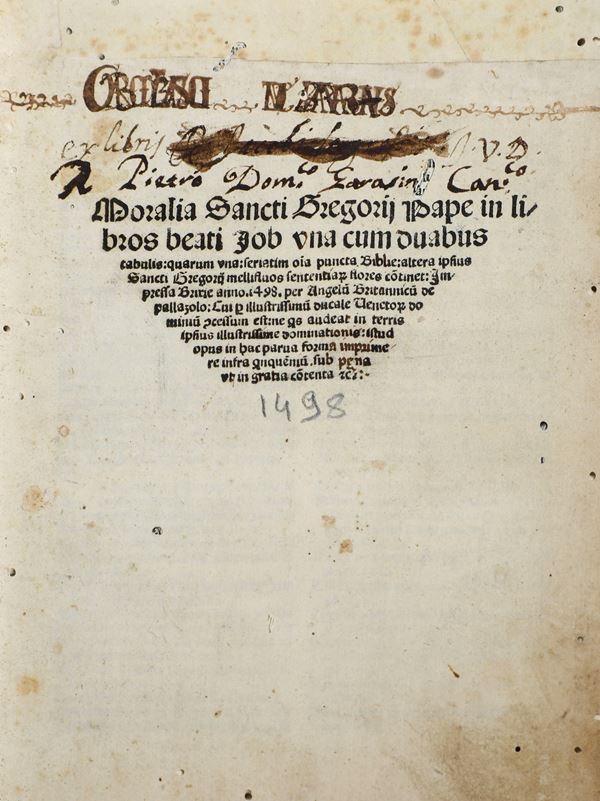 ex libris V. D.
Pietro Dom.co Can.co
Moralia Sancti Gregorij Pape in li-
bros beati Job vna cum duabus
tabulis: quarum vna: seriatim oīa puncta Biblie: altera ipsius
Sancti Gregorij mellifluos sententiaꝝ flores cōtinet: Im-
pressa Brixie anno .1498. per Angelū Britannicū de
pallazolo: Cui ꝑ illustrissimū ducale Uenetoꝝ do
miniū ꝯcessum est: ne qs audeat in terris
ipsius illustrissime dominationis: istud
opus in hac parua forma imprime-
re infra qnquēniū. sub pena
vt in gratia cōtenta ⁊cͣ:-
1498